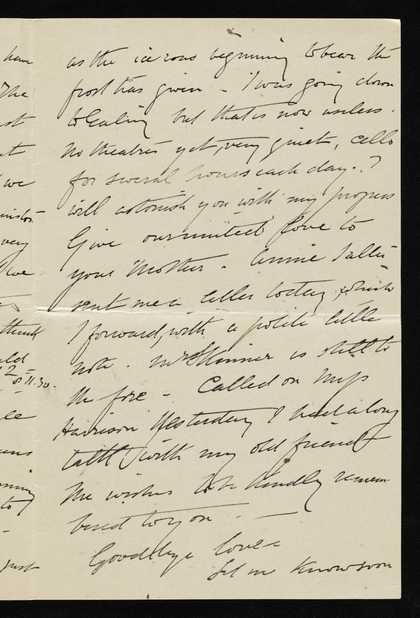 have
The
we
very
we
think
11.30.
to
just
as the ice was beginning to bear the
frost has given - I was going down
to Ealing but that is now useless.
No theatres yet, very quiet, cello
for several hours each day. I
will astonish you with my progress
Give our united love to
your Mother. Annie
sent me a letter today which
I forward, with a polite little
note. Mr Skinner is still to
the fore - Called on Miss
Harrison yesterday & had a long
talk with my old friend
He wishes to be kindly remem
bered to you -
Goodbye love
Let me know soon